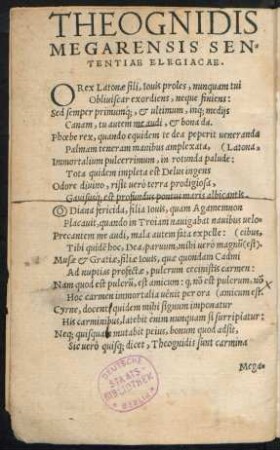 THEOGNIDIS
MEGARENSIS SEN-
TENTIAE ELEGIACAE.
O Rex Latonæ fili, Iouis proles, nunquam tui
Obliuiscar exordiens, neque finiens:
Sed semper primumq;, & ultimum, inq; medijs
Canam, tu autem me audi, & bona da.
Phœbe rex, quando quidem te dea peperit ueneranda
Palmam teneram manibus amplexata, (Latona,
Immortalium pulcerrimum, in rotunda palude:
Tota quidem impleta est Delus ingens
Odore diuino, risit uerò terra prodigiosa,
Gauisusq; est profundus pontus maris albicantis.
O Diana fericida, filia Iouis, quam Agamemnon
Placauit, quando in Troiam nauigabat nauibus uelo-
Precantem me audi, mala autem fata expelle: (cibus,
Tibi quidē hoc, Dea, paruum, mihi uerò magnū (est).
Musæ & Gratiæ, filiæ Iouis, quæ quondam Cadmi
Ad nuptias profectæ, pulcrum cecinistis carmen:
Nam quod est pulcrū, est amicum: q; nō est pulcrum, nō
Hoc carmen immortalia uēnit per ora (amicum est.
Cyrne, docenti quidem mihi signum imponatur
His carminibus, latebit enim nunquam si surripiatur:
Neq; quisquam mutabit peius, bonum quod adsit,
Sic uerò quisq; dicet, Theognidis sunt carmina
Mega-
DEUTSCHE
STAATS-
BIBLIOTHEK
BERLIN